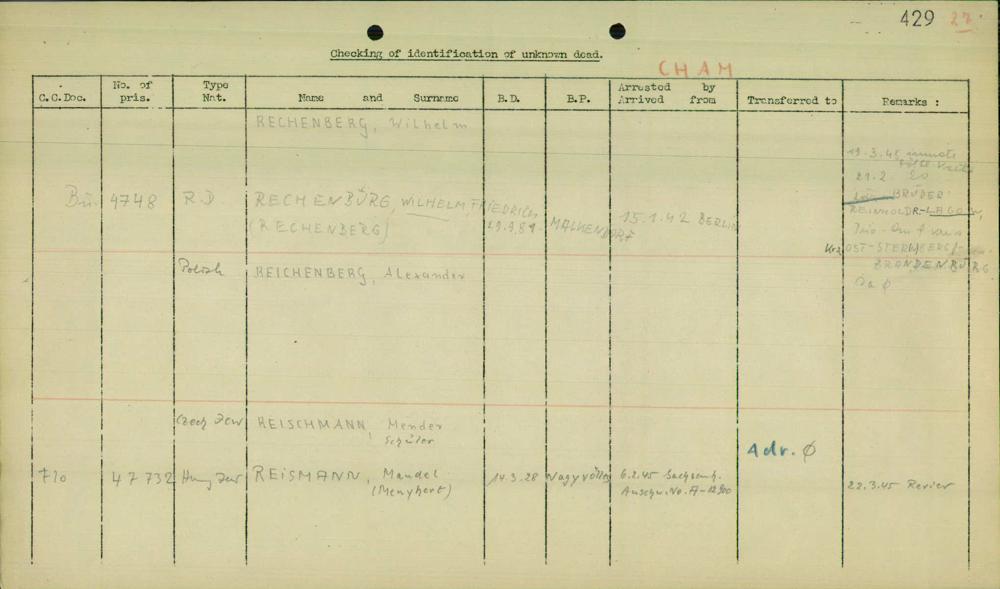 429 27
Checking of identification of unknown dead.
CHAM
C.C.Doc.
No. of pris.
Type Nat.
Name and Surname
B.D.
B.P.
Arrested by
Arrived from
Transferred to
Remarks :
RECHENBERG, Wilhelm
19.3.45
21.2.
Bu. 4748 R.D. RECHENBURG, WILHELM, FRIEDRICH
(RECHENBERG) 29.9.81 MALKENDORF 15.1.42 BERLIN
BRÜDER:
REINHOLD R.-LAGOW,
OST-STERNBERG-
BRANDENBURG
Polish REICHENBERG, Alexander
Czech Jew REISCHMANN, Mender
Schüler
Adr. Ø
Flo 47732 Hung Jew REISMANN, Mandel 14.3.28 6.2.45 Sachsenh.
(Menyhert) Auschw. No. A-12900
22.3.45 Revier